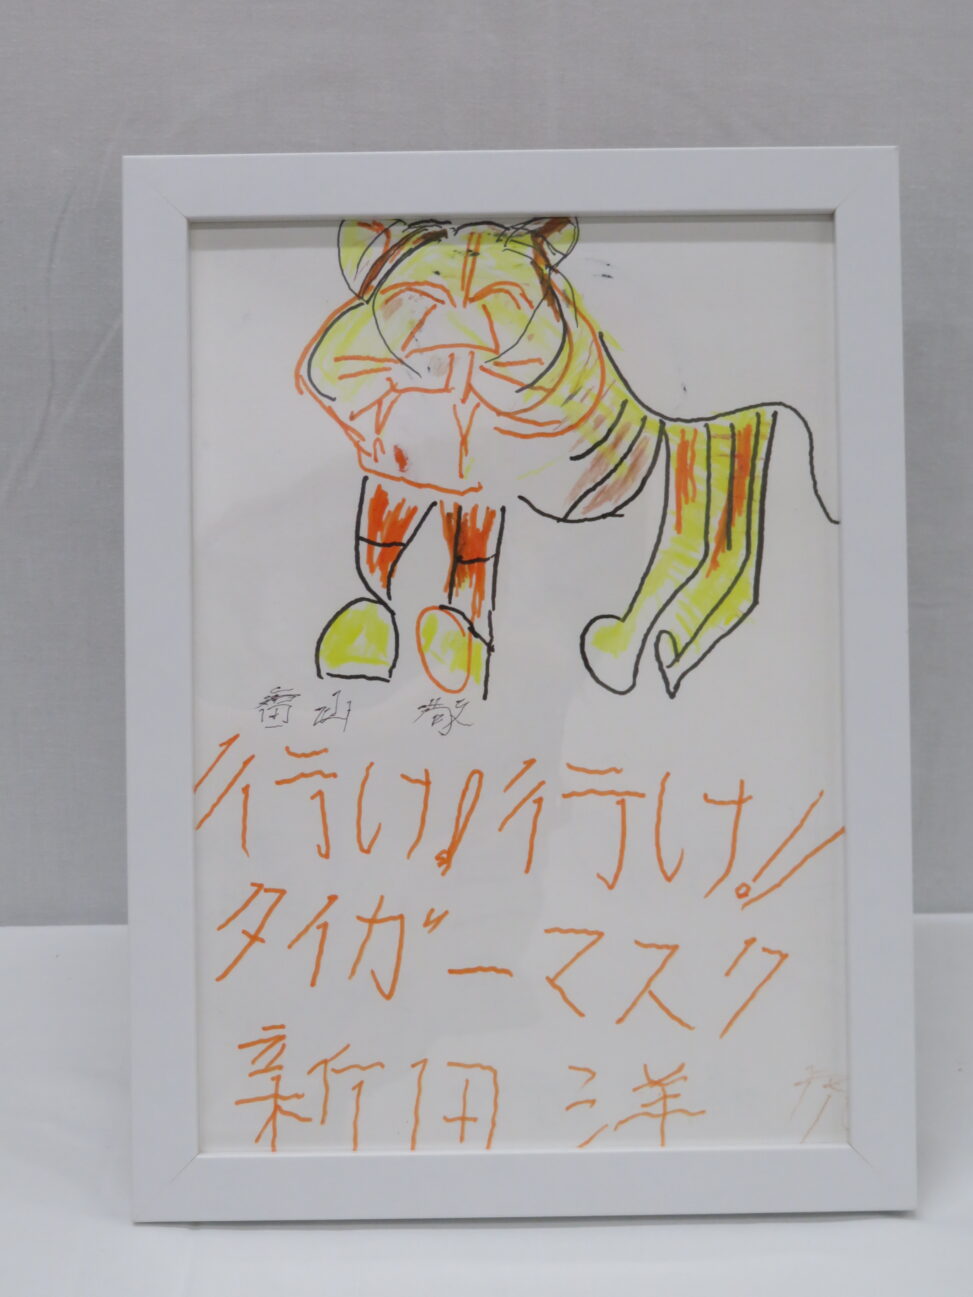 山 敬
行け!行け!
タイガーマスク
新田 洋